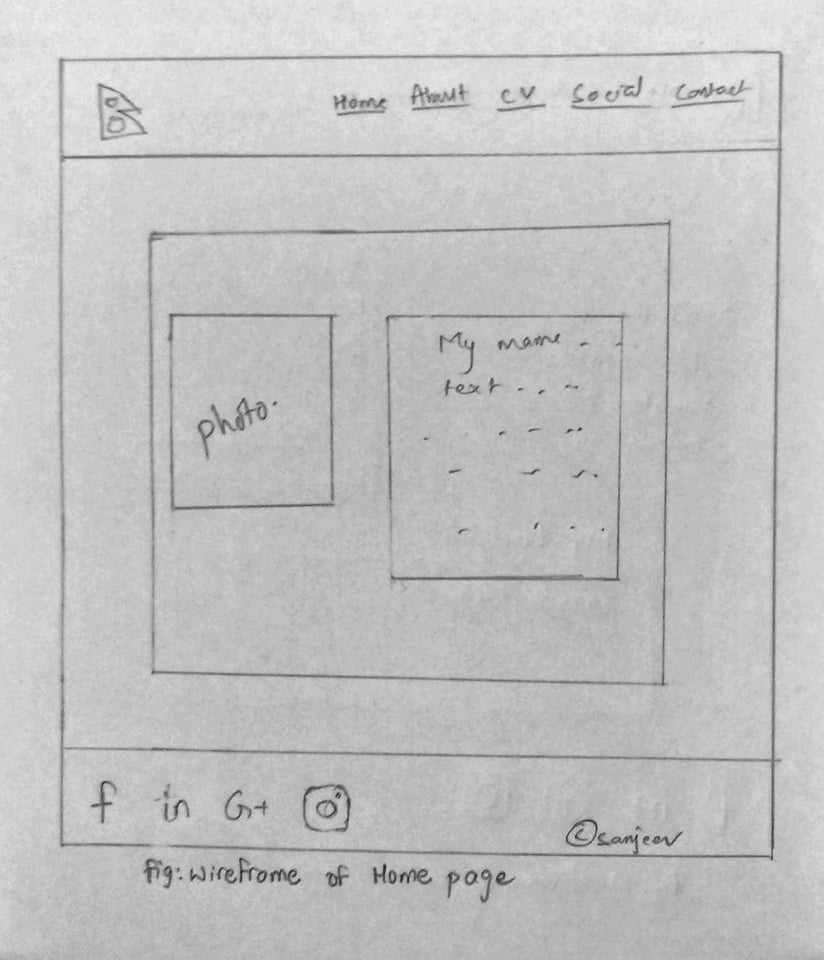 B
Home About CV Social Contact
My name - -
text - . -
photo.
f in G+
©sanjeev
fig: wireframe of Home page